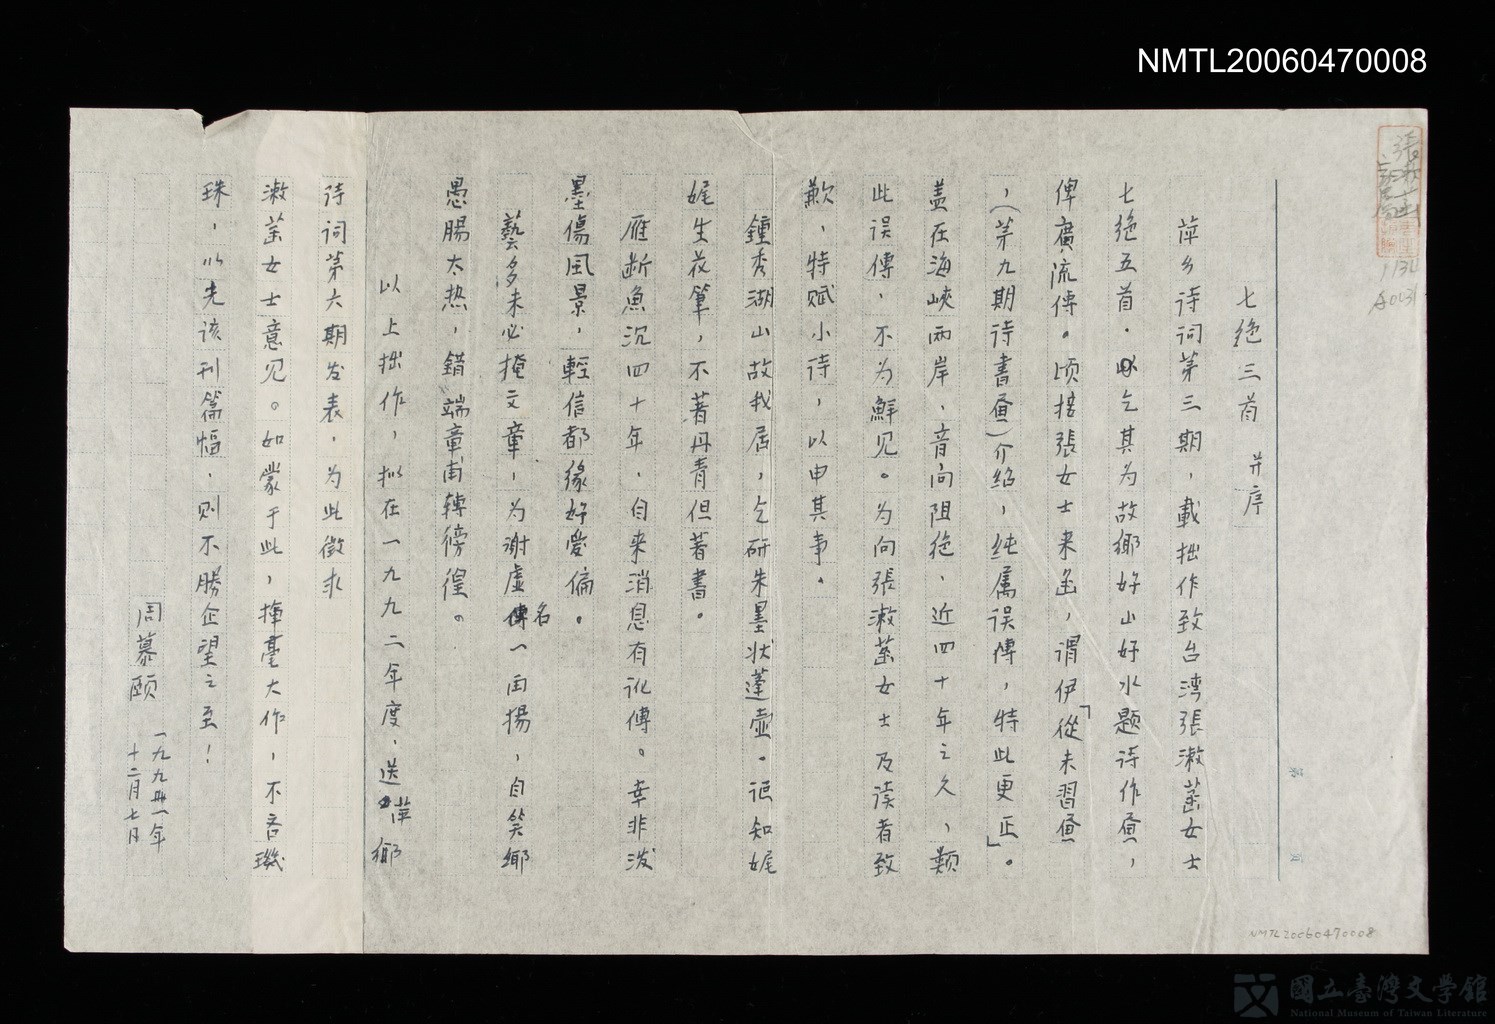 NMTL20060470008
七绝三首 并序
萍乡诗词第三期，載拙作致台湾張漱菡女士
七绝五首．乞其为故鄉好山好水题诗作画，
俾廣流傳。顷接張女士来函，谓伊「從未習画
，（第九期诗書画）介绍，纯属误傳，特此更正」。
盖在海峽兩岸、音问阻绝、近四十年之久，類
此误傳、不为鮮见。为向張漱菡女士及读者致
歉，特赋小诗，以申其事。
鍾秀湖山故我居，乞研朱墨状蓬壶。讵知妮
妮生花筆，不著丹青但著書。
雁断魚沉四十年．自来消息有讹傳。幸非泼
墨傷風景，輕信都缘好爱偏。
藝多未必掩文章，为谢虚名一囯揚，自笑鄉
愚腸太热，錯端章甫轉徬徨。
以上拙作，拟在一九九二年度、送萍鄉
诗词第六期发表．为此徵求
漱菡女士意见。如蒙于此，揮毫大作，不吝璣
珠，以先该刊篇幅．则不勝企望之至！
周慕颐
一九九一年
十二月七日
第 页
張漱菡
1134
A0031
NMTL20060470008
國立臺灣文學館
National Museum of Taiwan Literature